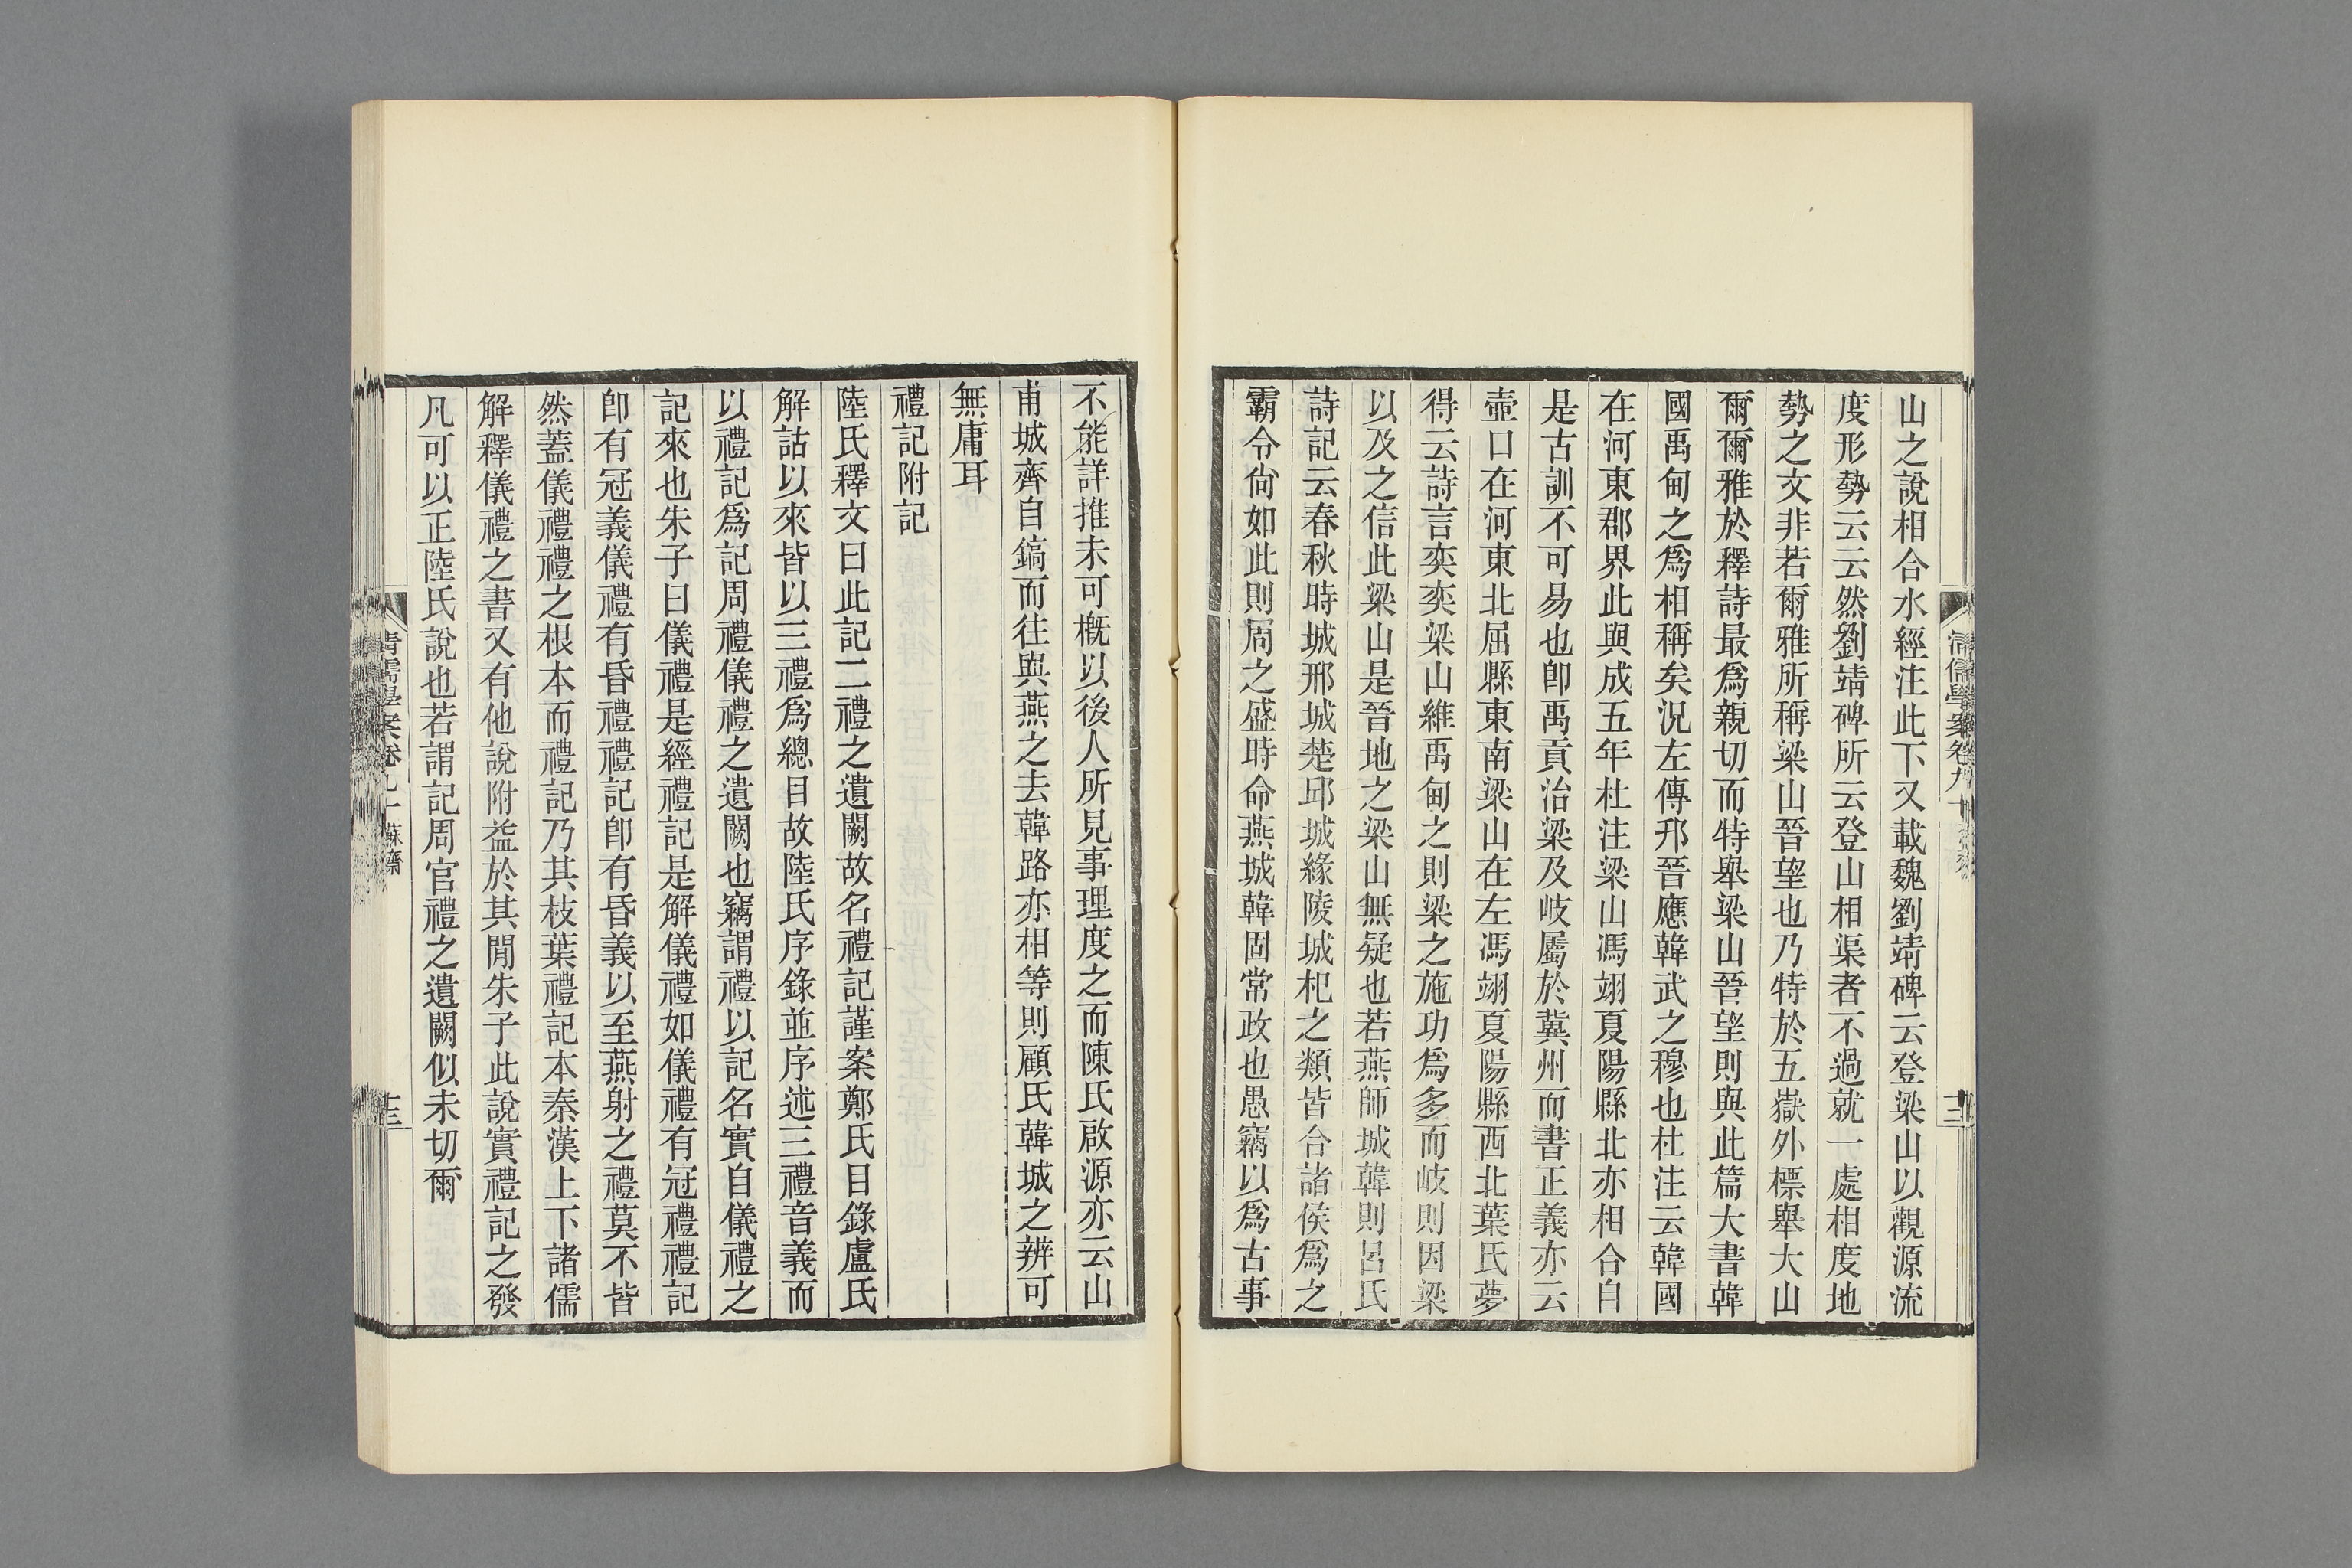 山之說相合水經注此下又載魏劉靖碑云登梁山以觀源流
度形勢云云然劉靖碑所云登山相渠者不過就一處相度地
勢之文非若爾雅所稱梁山晉望也乃特於五嶽外標舉大山
爾爾雅於釋詩最爲親切而特舉梁山晉望則與此篇大書韓
國禹甸之爲相稱矣況左傳邘晉應韓武之穆也杜注云韓國
在河東郡界此與成五年杜注梁山馮翊夏陽縣北亦相合自
是古訓不可易也卽禹貢治梁及岐屬於冀州而書正義亦云
壺口在河東北屈縣東南梁山在左馮翊夏陽縣西北葉氏夢
得云詩言奕奕梁山維禹甸之則梁之施功爲多而岐則因梁
以及之信此梁山是晉地之梁山無疑也若燕師城韓則呂氏
詩記云春秋時城邢城楚邱城緣陵城杞之類皆合諸侯爲之
霸令尙如此則周之盛時命燕城韓固常政也愚竊以爲古事
清儒學案卷九十
不能詳推未可槪以後人所見事理度之而陳氏啟源亦云山
甫城齊自鎬而往與燕之去韓路亦相等則顧氏韓城之辨可
無庸耳
禮記附記
陸氏釋文曰此記二禮之遺闕故名禮記謹案鄭氏目錄盧氏
解詁以來皆以三禮爲總目故陸氏序錄並序述三禮音義而
以禮記爲記周禮儀禮之遺闕也竊謂禮以記名實自儀禮之
記來也朱子曰儀禮是經禮記是解儀禮如儀禮有冠禮禮記
卽有冠義儀禮有昏禮禮記卽有昏義以至燕射之禮莫不皆
然蓋儀禮禮之根本而禮記乃其枝葉禮記本秦漢上下諸儒
解釋儀禮之書又有他說附益於其閒朱子此說實禮記之發
凡可以正陸氏說也若謂記周官禮之遺闕似未切爾
清儒學案卷九十 蘇齋
十三